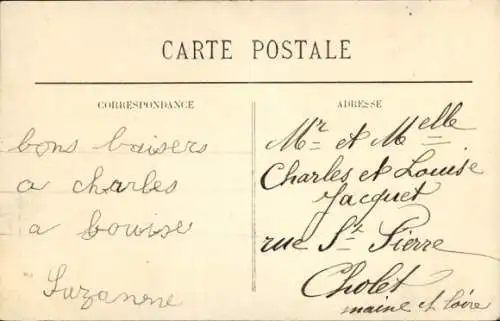 CARTE POSTALE
CORRESPONDANCE
bons baisers
a charles
a bouise
Suzanne
ADRESSE
Mr et Melle
Charles et Louise
Jacquet
rue St Pierre
Cholet
maine et loire